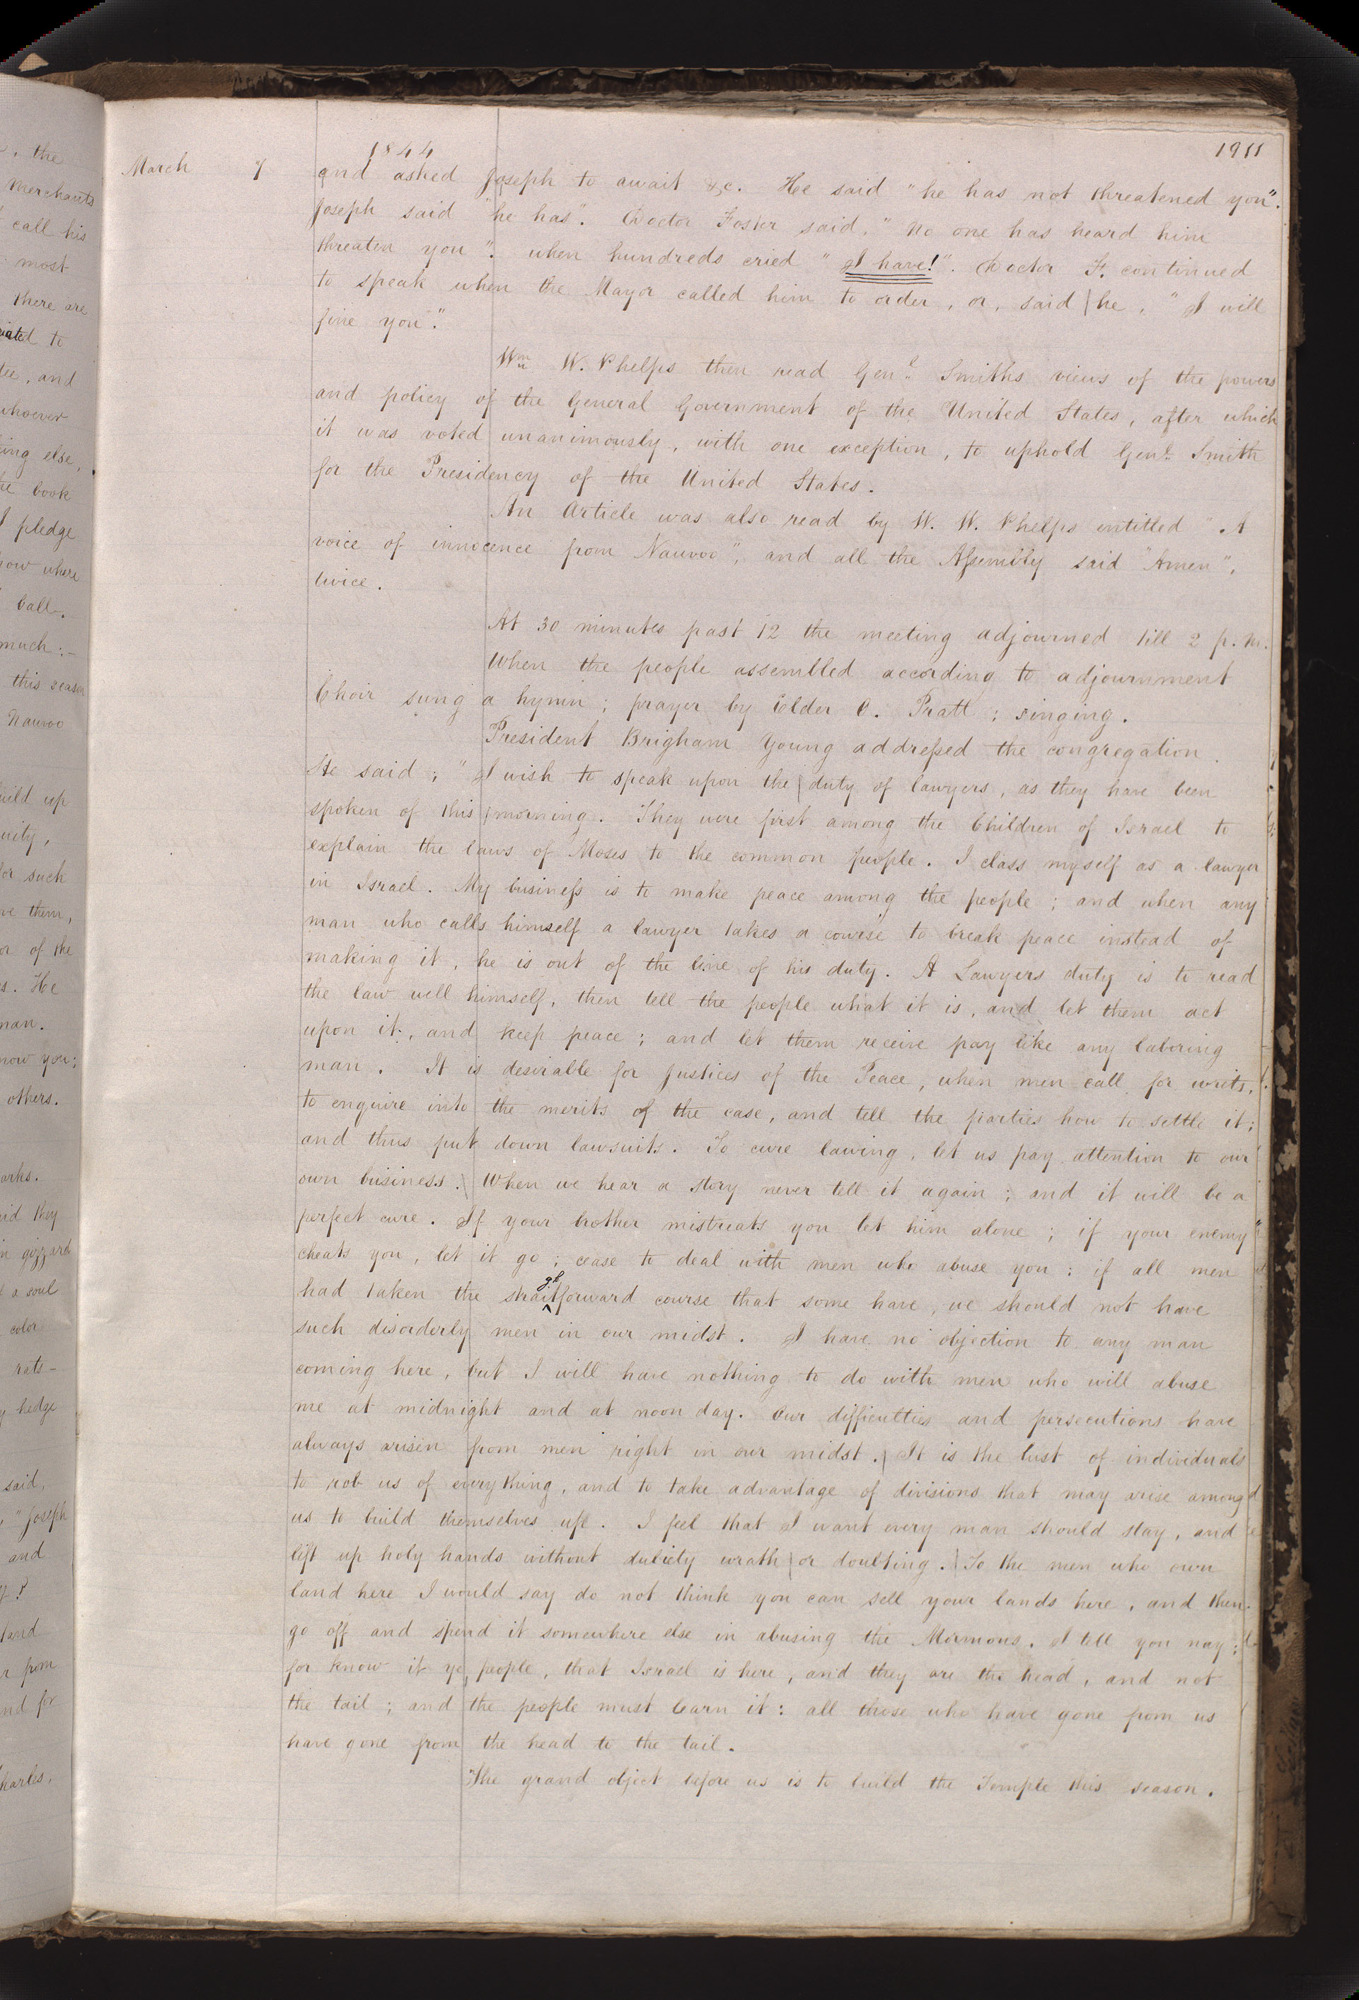 1844
1911
March 7 and asked Joseph to await &c. He said "he has not threatened you".
Joseph said "he has". Doctor Foster said, "No one has heard him
threaten you". when hundreds cried "I have!". Doctor F. continued
to speak when the Mayor called him to order, or, said he, "I will
fine you".
Wm W. Phelps then read Genl. Smiths views of the powers
and policy of the General Government of the United States, after which
it was voted unanimously, with one exception, to uphold Genl. Smith
for the Presidency of the United States.
An Article was also read by W. W. Phelps intitled "A
voice of innocence from Nauvoo", and all the Assembly said "Amen",
twice.
At 30 minutes past 12 the meeting adjourned till 2 p.m.
When the people assembled according to adjournment
Choir sung a hymn; prayer by Elder O. Pratt; singing.
President Brigham Young addressed the congregation.
He said; "I wish to speak upon the duty of lawyers, as they have been
spoken of this morning. They were first among the Children of Israel to
explain the laws of Moses to the common people. I class myself as a lawyer
in Israel. My business is to make peace among the people; and when any
man who calls himself a lawyer takes a course to break peace instead of
making it, he is out of the line of his duty. A Lawyers duty is to read
the law well himself, then tell the people what it is, and let them act
upon it, and keep peace; and let them receive pay like any laboring
man. It is desirable for Justices of the Peace, when men call for writs,
to enquire into the merits of the case, and tell the parties how to settle it;
and thus put down lawsuits. To cure lawing, let us pay attention to our
own business. When we hear a story never tell it again; and it will be a
perfect cure. If your brother mistreats you let him alone; if your enemy
cheats you, let it go; cease to deal with men who abuse you: if all men
had taken the straightforward course that some have, we should not have
such disorderly men in our midst. I have no objection to any man
coming here, but I will have nothing to do with men who will abuse
me at midnight and at noon day. Our difficulties and persecutions have
always arisen from men right in our midst. It is the lust of individuals
to rob us of everything, and to take advantage of divisions that may arise among
us to build themselves up. I feel that I want every man should stay, and
lift up holy hands without dubiety wrath or doubting. To the men who own
land here I would say do not think you can sell your lands here, and then
go off and spend it somewhere else in abusing the Mormons. I tell you nay;
for know it ye people, that Israel is here, and they are the head, and not
the tail; and the people must learn it: all those who have gone from us
have gone from the head to the tail.
"The grand object before us is to build the Temple this season.